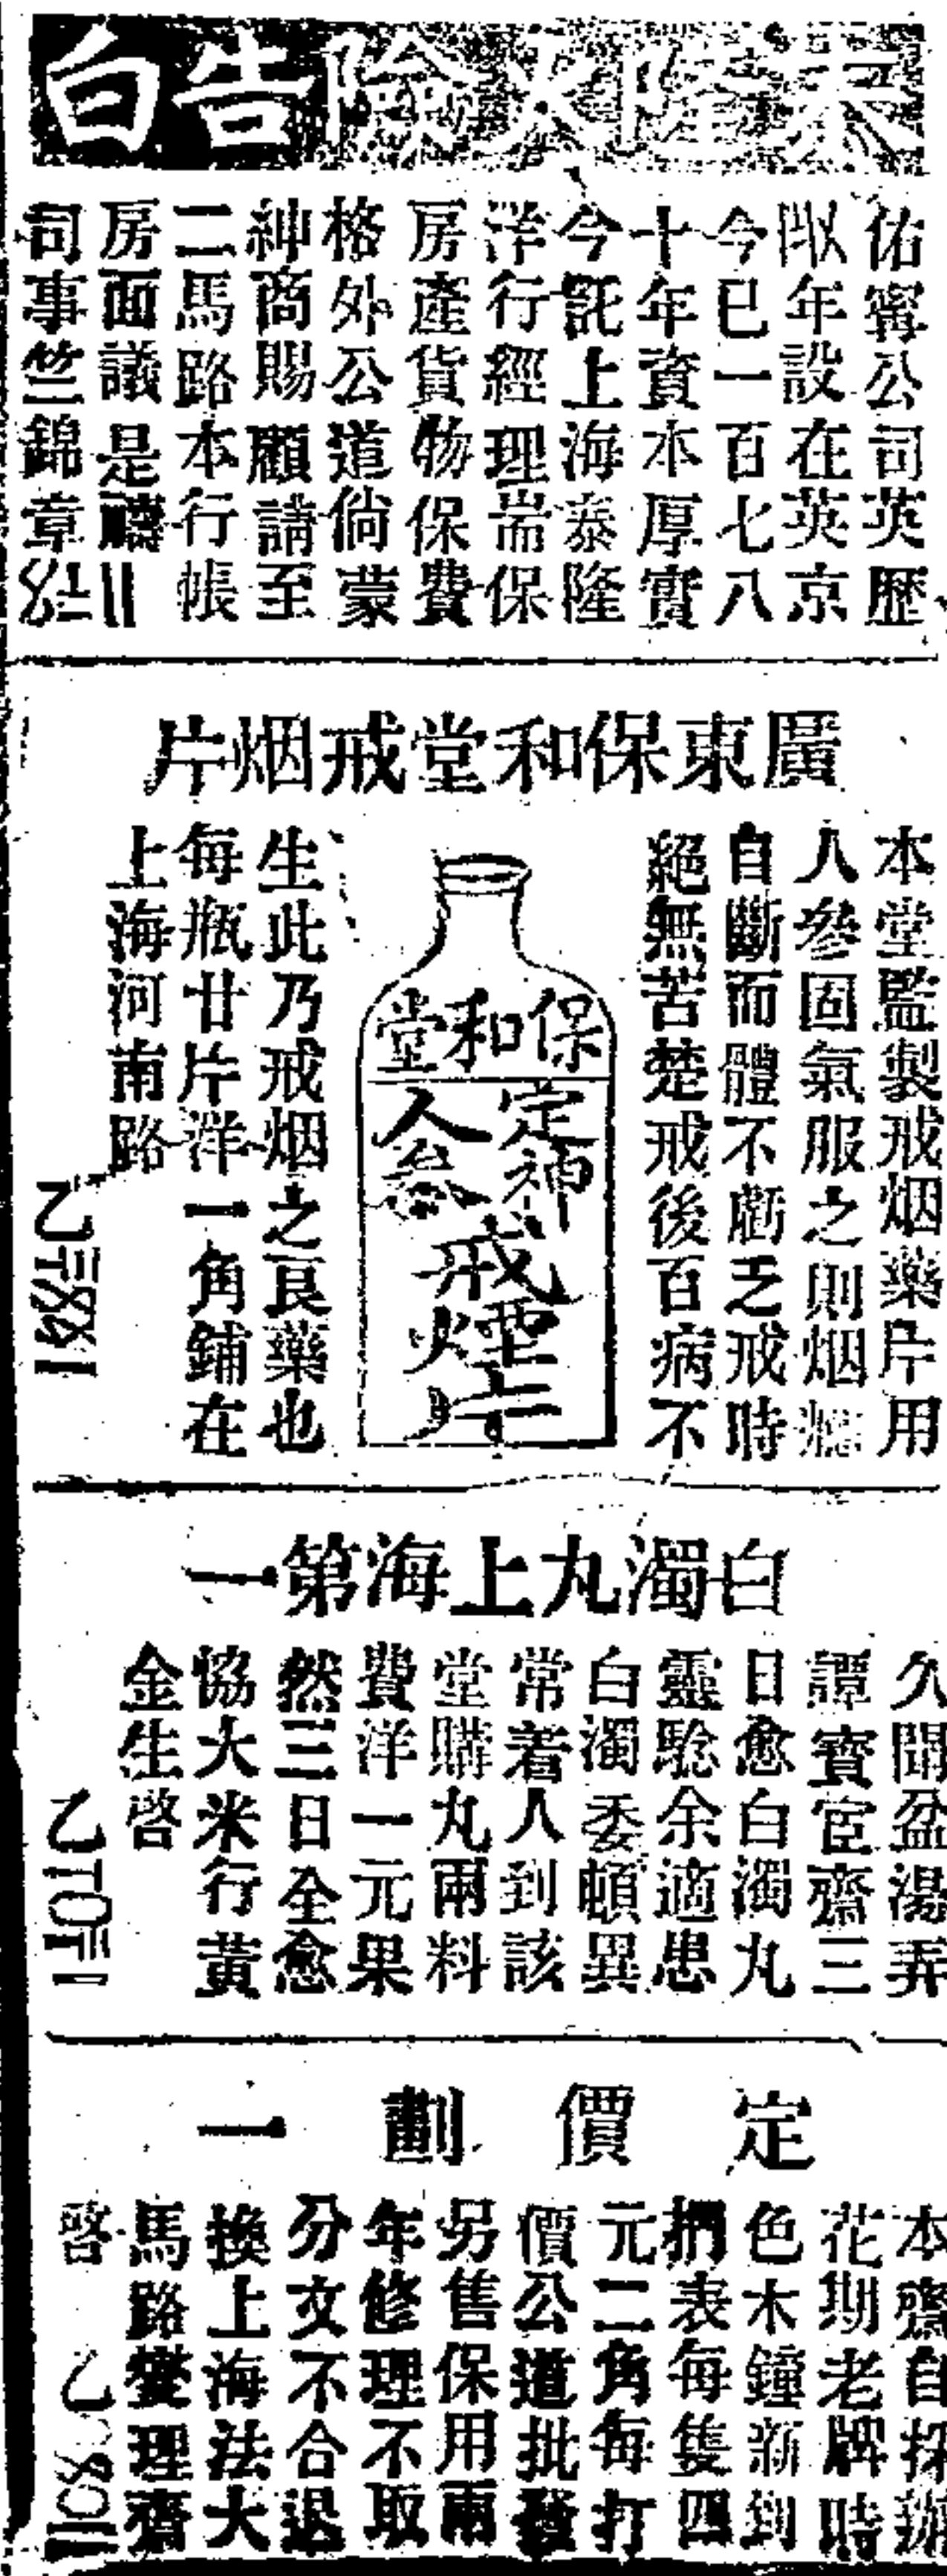 泰隆火險告白
佑甯公司英歷
年設在英京
今已一百七八
十年資本厚實
今託上海泰隆
洋行經理耑保
房產貨物保費
格外公道倘蒙
紳商賜顧請至
二馬路本行帳
房面議是禱
司事竺錦章
廣東保和堂戒烟片
本堂監製戒烟藥片用
人參固氣服之則烟癮
自斷而體不虧乏戒時
絕無苦楚戒後百病不
保和堂
定神
人參
戒煙片
生此乃戒烟之良藥也
每瓶廿片洋一角鋪在
上海河南路
乙
白濁丸上海第一
久聞盆湯弄
譚寶宦齋三
日愈白濁丸
靈驗余適患
白濁委頓異
常着人到該
堂購丸兩料
費洋一元果
然三日全愈
協大米行黃
金生啓
乙
定價劃一
本齋自採辦
花期老牌時
色木鐘新到
捫表每隻四
元二角每打
價公道批發
另售保用兩
年修理不取
分文不合退
換上海法大
馬路燮理齋
啓
乙